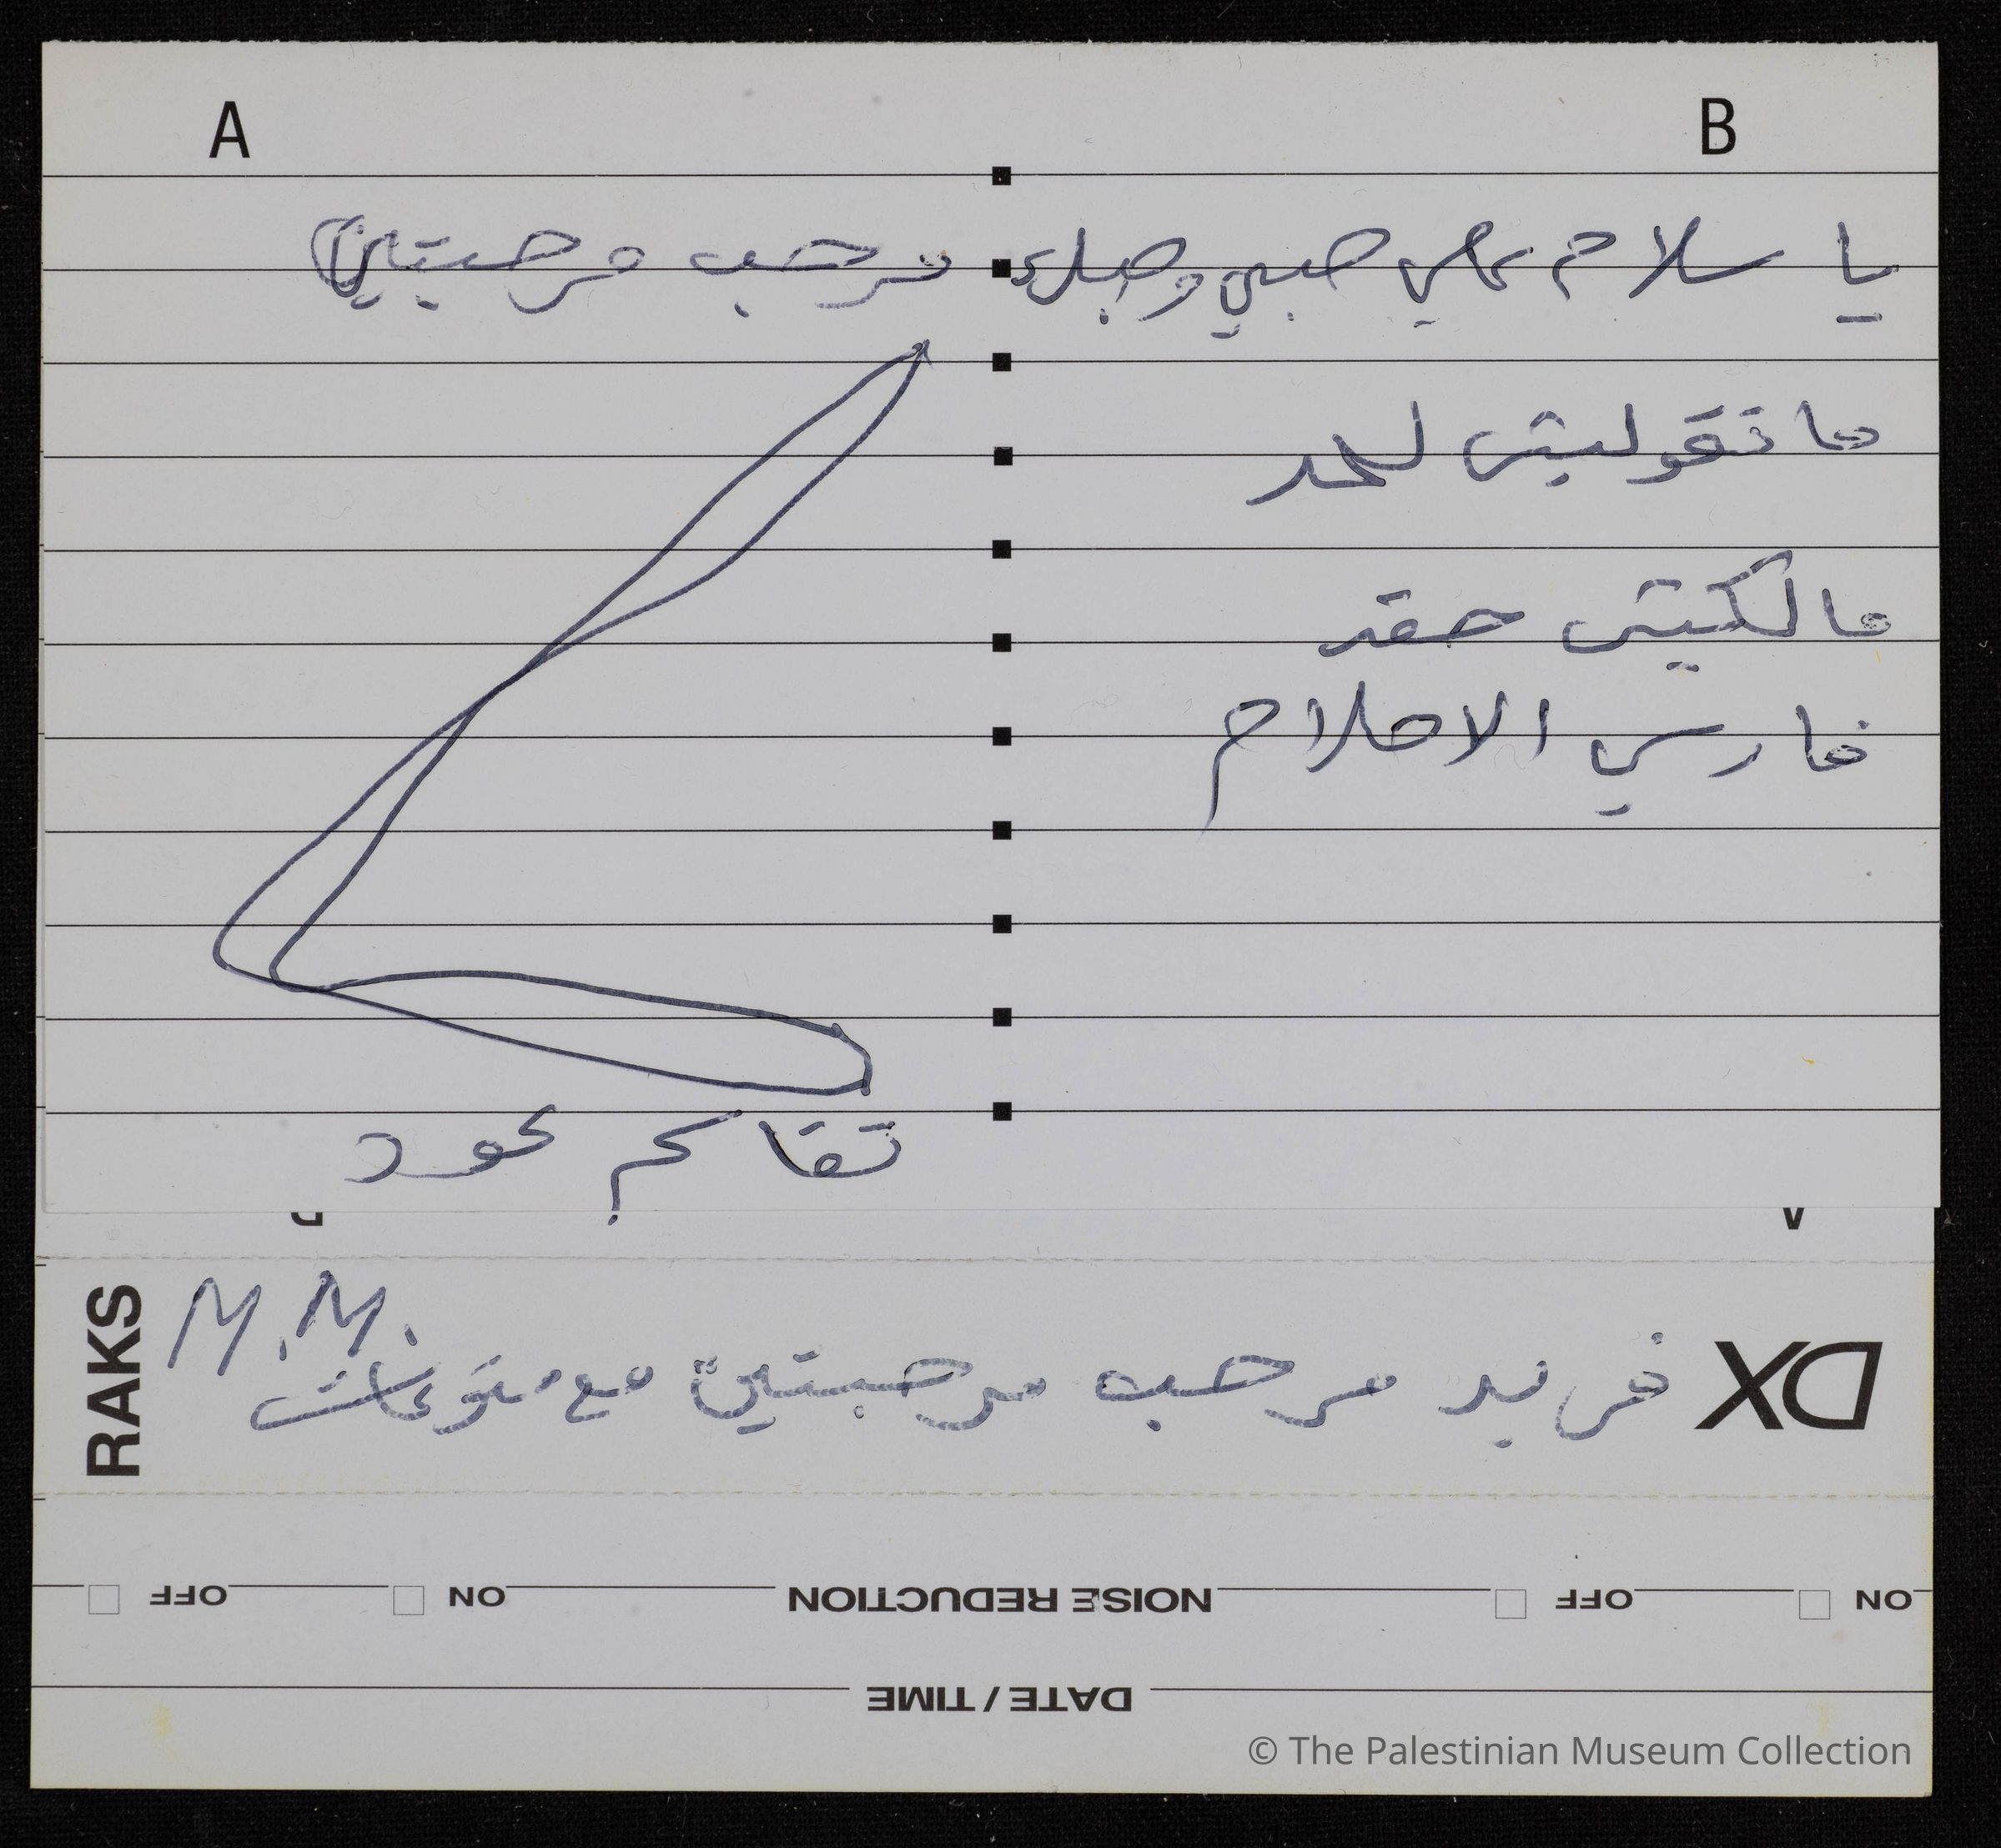 A B
يا سلام على حبي وحبك مرحب مرحبتين
ما تقوليش لحد
مالكيش حقد
فارس الاحلام
تقاسم عود
M.M.
RAKS فريد مرحب مرحبتين مع منوعات DX
ON OFF NOISE REDUCTION ON OFF
DATE / TIME
© The Palestinian Museum Collection